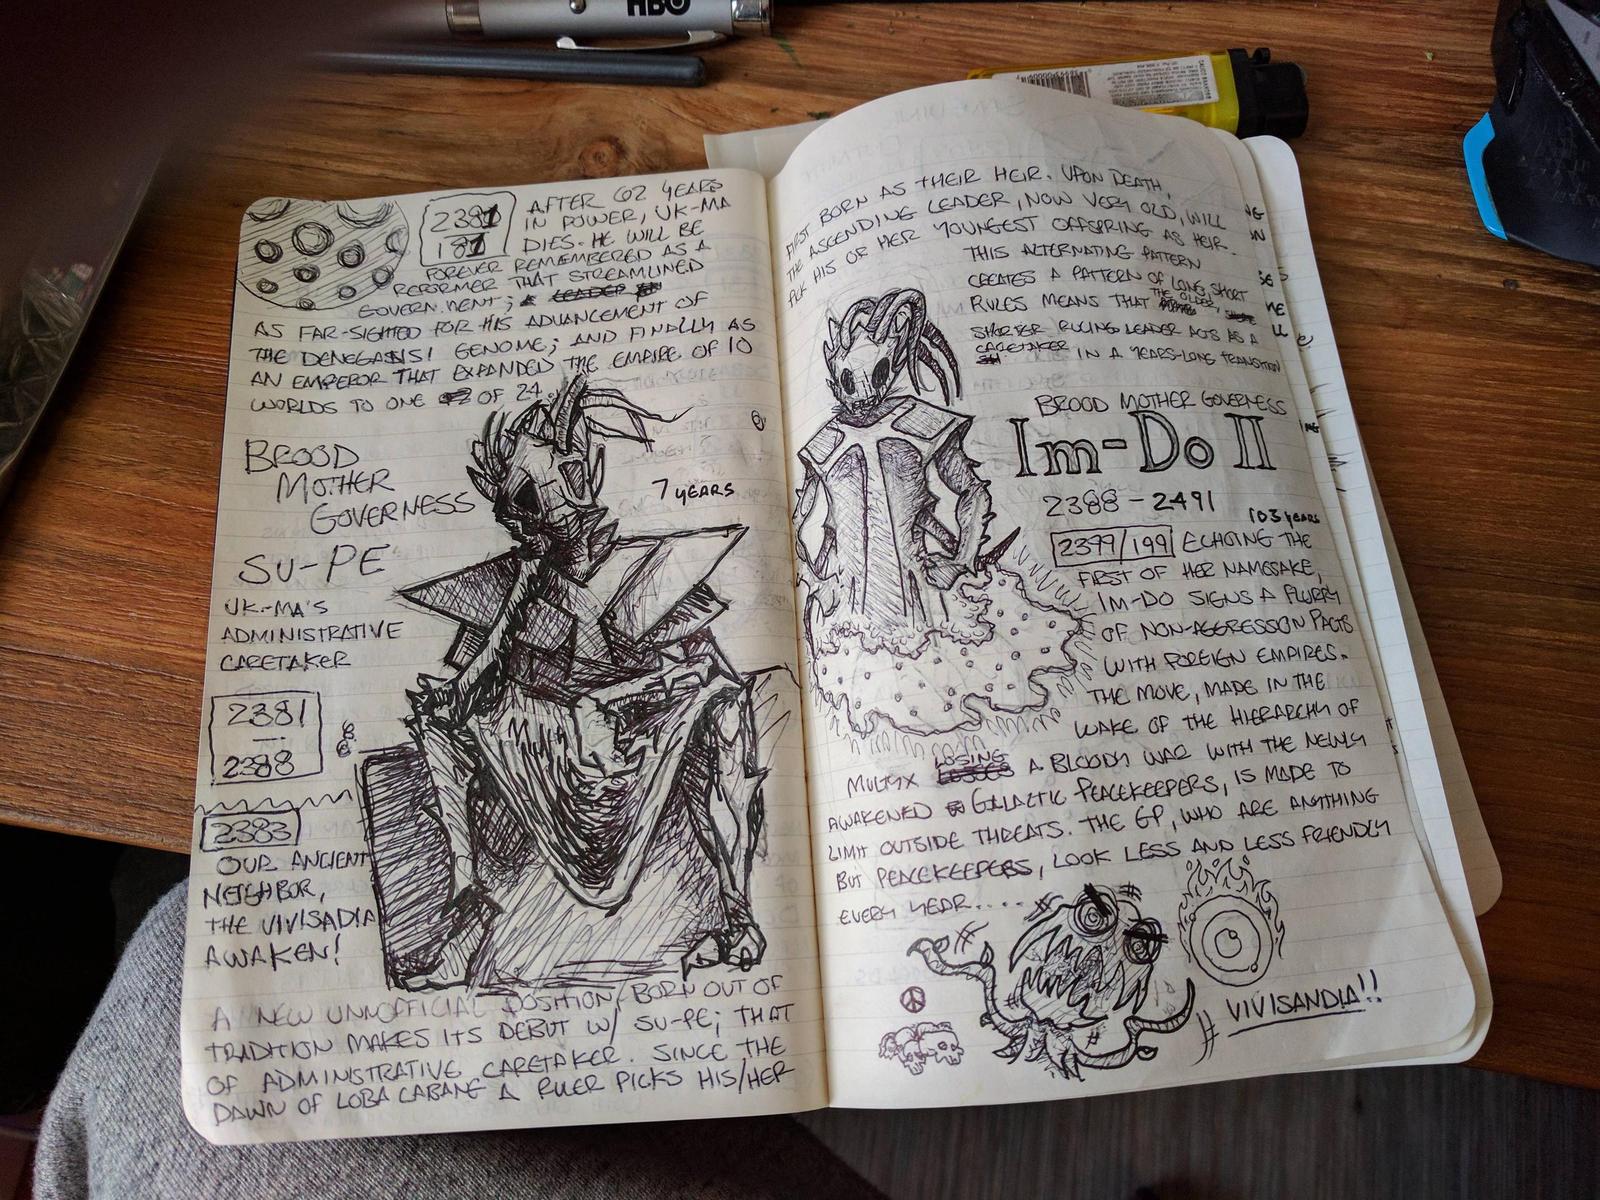 HBO
2381
181
AFTER 62 YEARS
IN POWER, UK-MA
DIES. HE WILL BE
FOREVER REMEMBERED AS A
REFORMER THAT STREAMLINED
GOVERNMENT; A LEADER
AS FAR-SIGHTED FOR HIS ADVANCEMENT OF
THE DENEGANSI GENOME; AND FINALLY AS
AN EMPEROR THAT EXPANDED THE EMPIRE OF 10
WORLDS TO ONE OF 24.
BROOD
MOTHER
GOVERNESS
SU-PE
7 YEARS
UK-MA'S
ADMINISTRATIVE
CARETAKER
2381
—
2388
2383
OUR ANCIENT
NEIGHBOR,
THE VIVISADIA
AWAKEN!
A NEW UNNOFFICIAL POSITION, BORN OUT OF
TRADITION MAKES ITS DEBUT W/ SU-PE; THAT
OF ADMINISTRATIVE CARETAKER. SINCE THE
DAWN OF LOBA CABANE A RULER PICKS HIS/HER
FIRST BORN AS THEIR HEIR. UPON DEATH,
THE ASCENDING LEADER, NOW VERY OLD, WILL
PICK HIS OR HER YOUNGEST OFFSPRING AS HEIR.
THIS ALTERNATING PATTERN
CREATES A PATTERN OF LONG, SHORT
RULES MEANS THAT THE OLDER,
SHORTER RULING LEADER ACTS AS A
CARETAKER IN A YEARS-LONG TRANSITION
BROOD MOTHER GOVERNESS
Im-Do II
2388 - 2491
103 YEARS
2399/199 ECHOING THE
FIRST OF HER NAMESAKE,
IM-DO SIGNS A FLURRY
OF NON-AGGRESSION PACTS
WITH FOREIGN EMPIRES.
THE MOVE, MADE IN THE
WAKE OF THE HIERARCHY OF
MULMYX LOSING A BLOODY WAR WITH THE NEWLY
AWAKENED GALACTIC PEACEKEEPERS, IS MADE TO
LIMIT OUTSIDE THREATS. THE GP, WHO ARE ANYTHING
BUT PEACEKEEPERS, LOOK LESS AND LESS FRIENDLY
EVERY YEAR....
VIVISANDIA!!